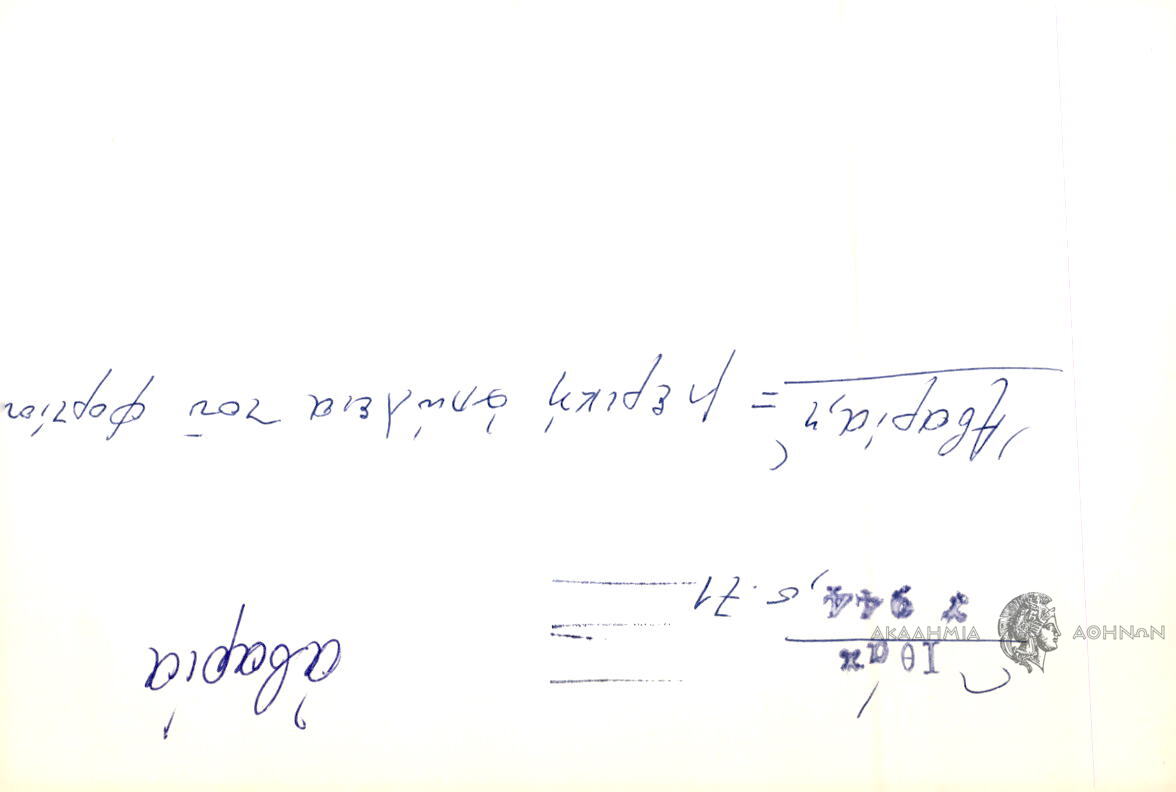 ἀβαρία
Ἰθάκ
944, σ. 71
Ἀβαρία, ἡ = μερικὴ ἀπώλεια τοῦ φορτίου
ΑΚΑΔΗΜΙΑ ΑΘΗΝΩΝ